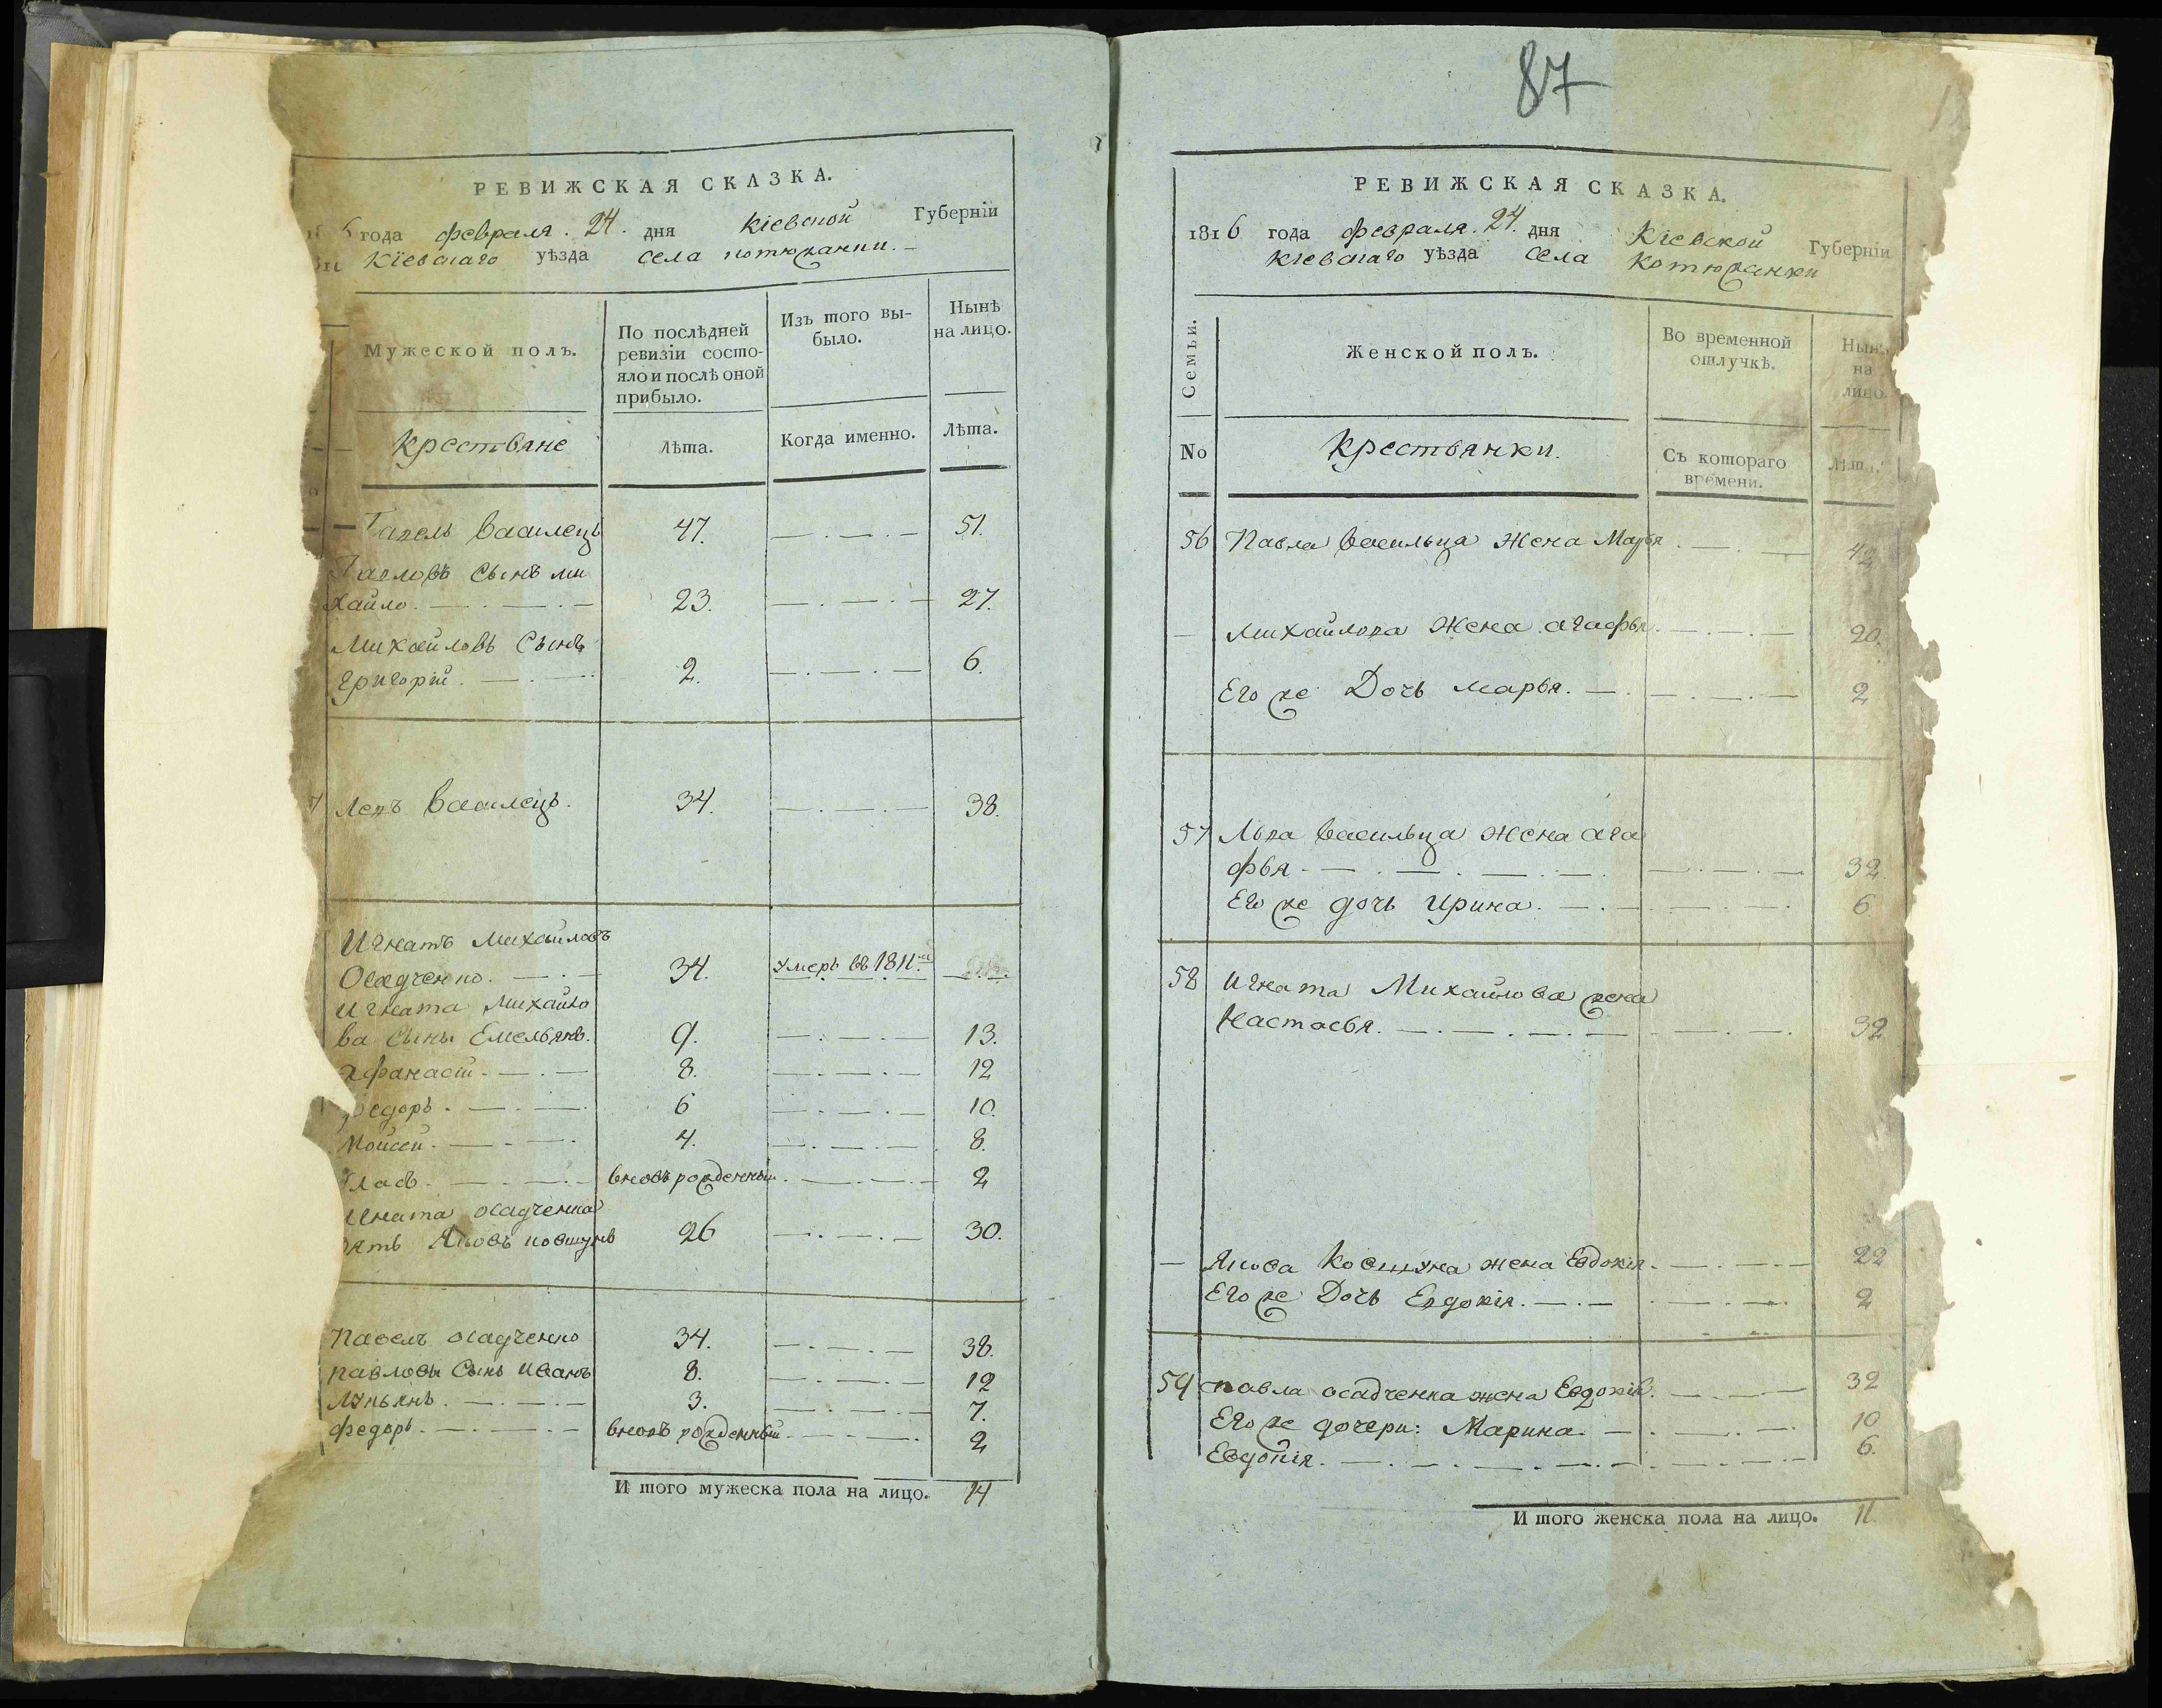 РЕВИЖСКАЯ СКАЗКА.
6 года февраля. 24. дня Кіевской Губерніи
Кіевскаго уѣзда села Котюжанки.
Мужеской полъ.
По послѣдней ревизіи состояло и послѣ оной прибыло.
Изъ того выбыло.
Нынѣ на лицо.
Крестьяне
Лѣта.
Когда именно.
Лѣта.
Павелъ Василецъ 47. 51.
Павловъ Сынъ Ми
хайло. 23. 27.
Михайловъ Сынъ
Григорій. 2. 6.
7 Левъ Василецъ. 34. 38.
Игнатъ Михайловъ
Осадченко. 34. умеръ въ 1811.
Игната Михайло
ва Сыны Емельянъ. 9. 13.
Афанасій. 8. 12
Федоръ. 6 10.
Мойсей. 4. 8.
Власъ. вновь рожденный. 2
Игната Осадченка
зять Яковъ Ковтунъ 26 30.
Павелъ Осадченко 34. 38.
Павловы Сынъ Иванъ 8. 12
Лукьянъ. 3. 7.
Федоръ. вновь рожденный. 2
И того мужеска пола на лицо. 14
87
РЕВИЖСКАЯ СКАЗКА.
1816 года февраля. 24. дня Кіевской Губерніи
Кіевскаго уѣзда Села Котюжанки
Семьи.
Женской полъ.
Во временной отлучкѣ.
Нынѣ на лицо.
No
Крестьянки.
Съ котораго времени.
Лѣта.
56 Павла Васильца Жена Марья 42
Михайлова Жена Агафья. 20.
Его же Дочь Марья. 2
57 Льва Васильца Жена Ага
фья 32.
Его же дочь Ирина. 6
58 Игната Михайлова жена
Настасья. 32
Якова Ковтуна жена Евдокія. 22
Его же Дочь Евдокія. 2
59 Павла Осадченка жена Евдокія. 32
Его же дочери: Марина. 10
Евдокія. 6.
И того женска пола на лицо. 11.